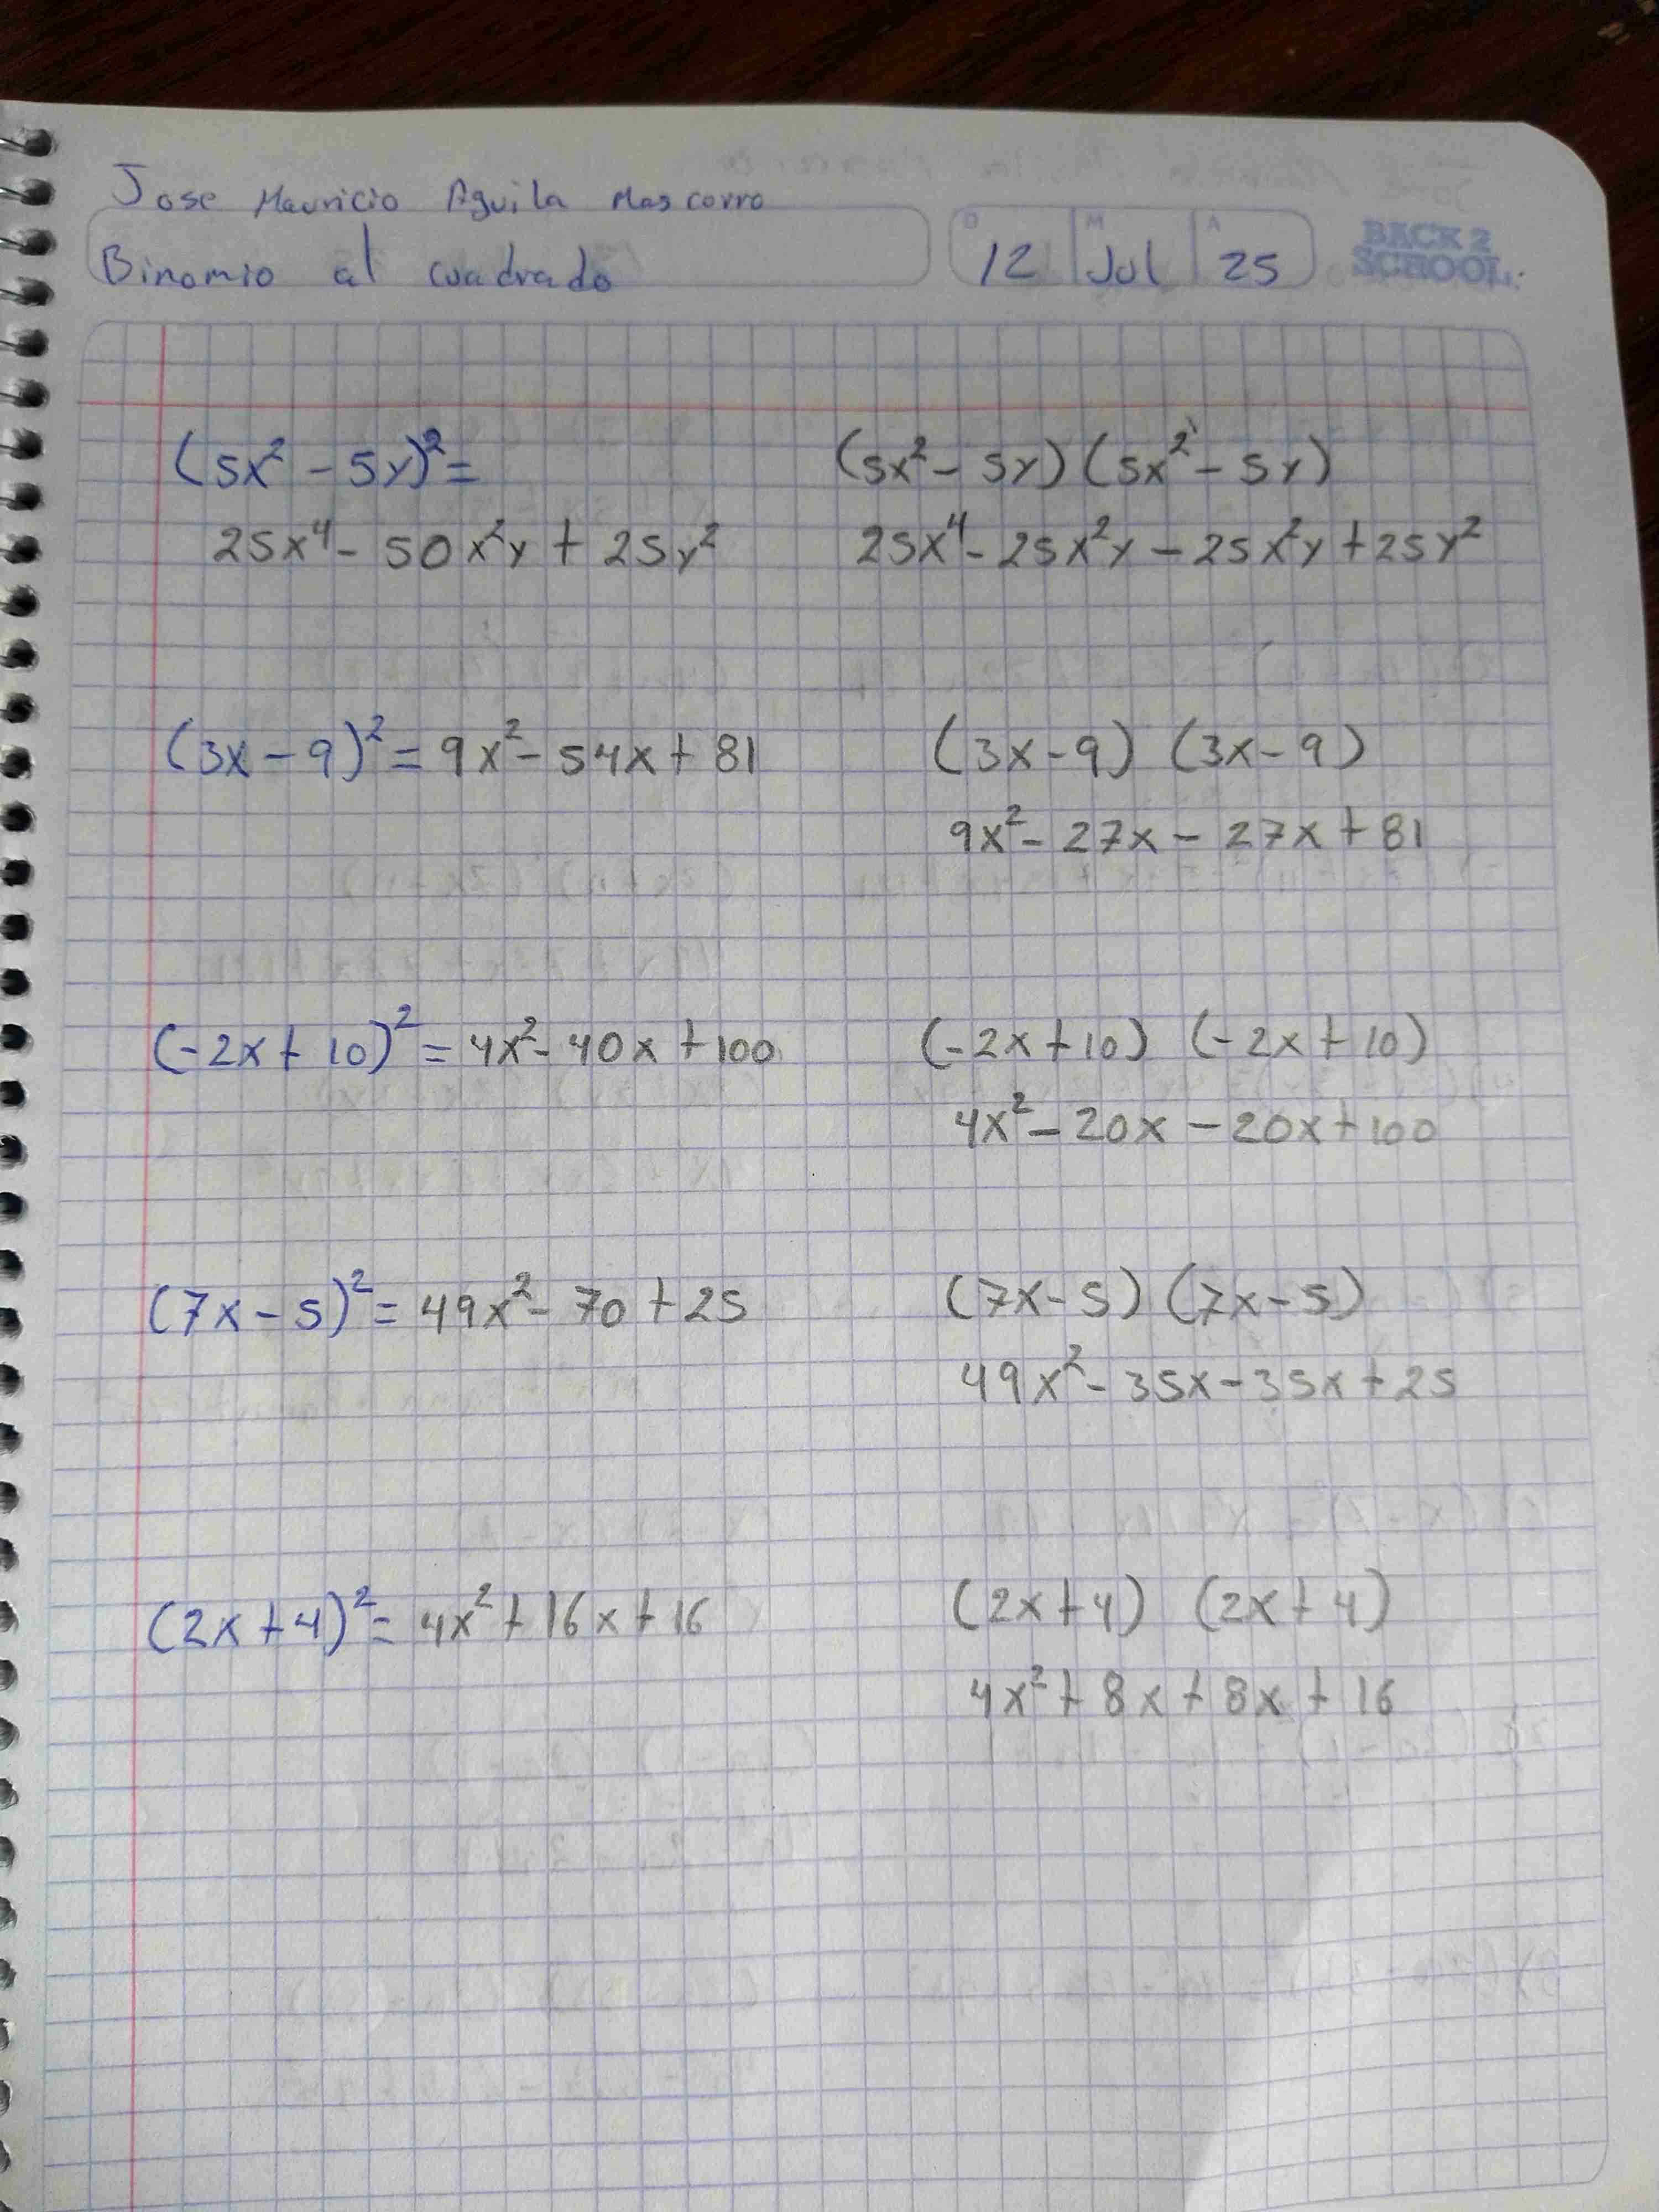 Jose Mauricio Aguila Mascorro
Binomio al cuadrado
D M A
12 Jul 25
BACK 2
SCHOOL.
(5x² - 5y)² =
(5x² - 5y) (5x² - 5y)
25x⁴ - 50x²y + 25y²
25x⁴ - 25x²y - 25x²y + 25y²
(3x - 9)² = 9x² - 54x + 81
(3x - 9) (3x - 9)
9x² - 27x - 27x + 81
(-2x + 10)² = 4x² - 40x + 100
(-2x + 10) (-2x + 10)
4x² - 20x - 20x + 100
(7x - 5)² = 49x² - 70 + 25
(7x - 5) (7x - 5)
49x² - 35x - 35x + 25
(2x + 4)² = 4x² + 16x + 16
(2x + 4) (2x + 4)
4x² + 8x + 8x + 16